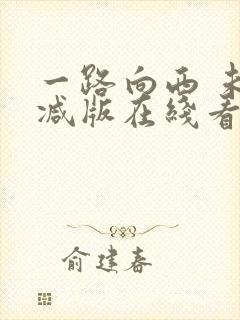 一路向西 未
减版在线看
俞建春